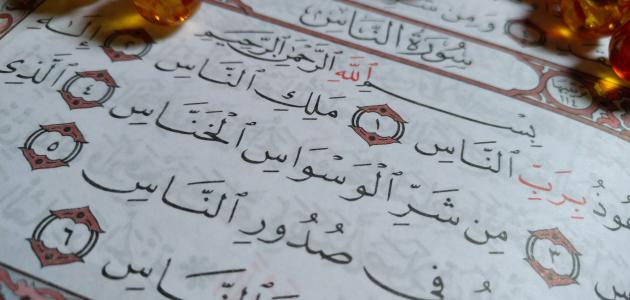 وَمِن
سُورَةُ النَّاسِ
بِسْمِ ٱللَّهِ ٱلرَّحْمَٰنِ ٱلرَّحِيمِ
عُوذُ بِرَبِّ ٱلنَّاسِ ١ مَلِكِ ٱلنَّاسِ ٢ إِلَٰهِ
٣ مِن شَرِّ ٱلْوَسْوَاسِ ٱلْخَنَّاسِ ٤ ٱلَّذِي
فِي صُدُورِ ٱلنَّاسِ ٥
وَٱلنَّاسِ ٦